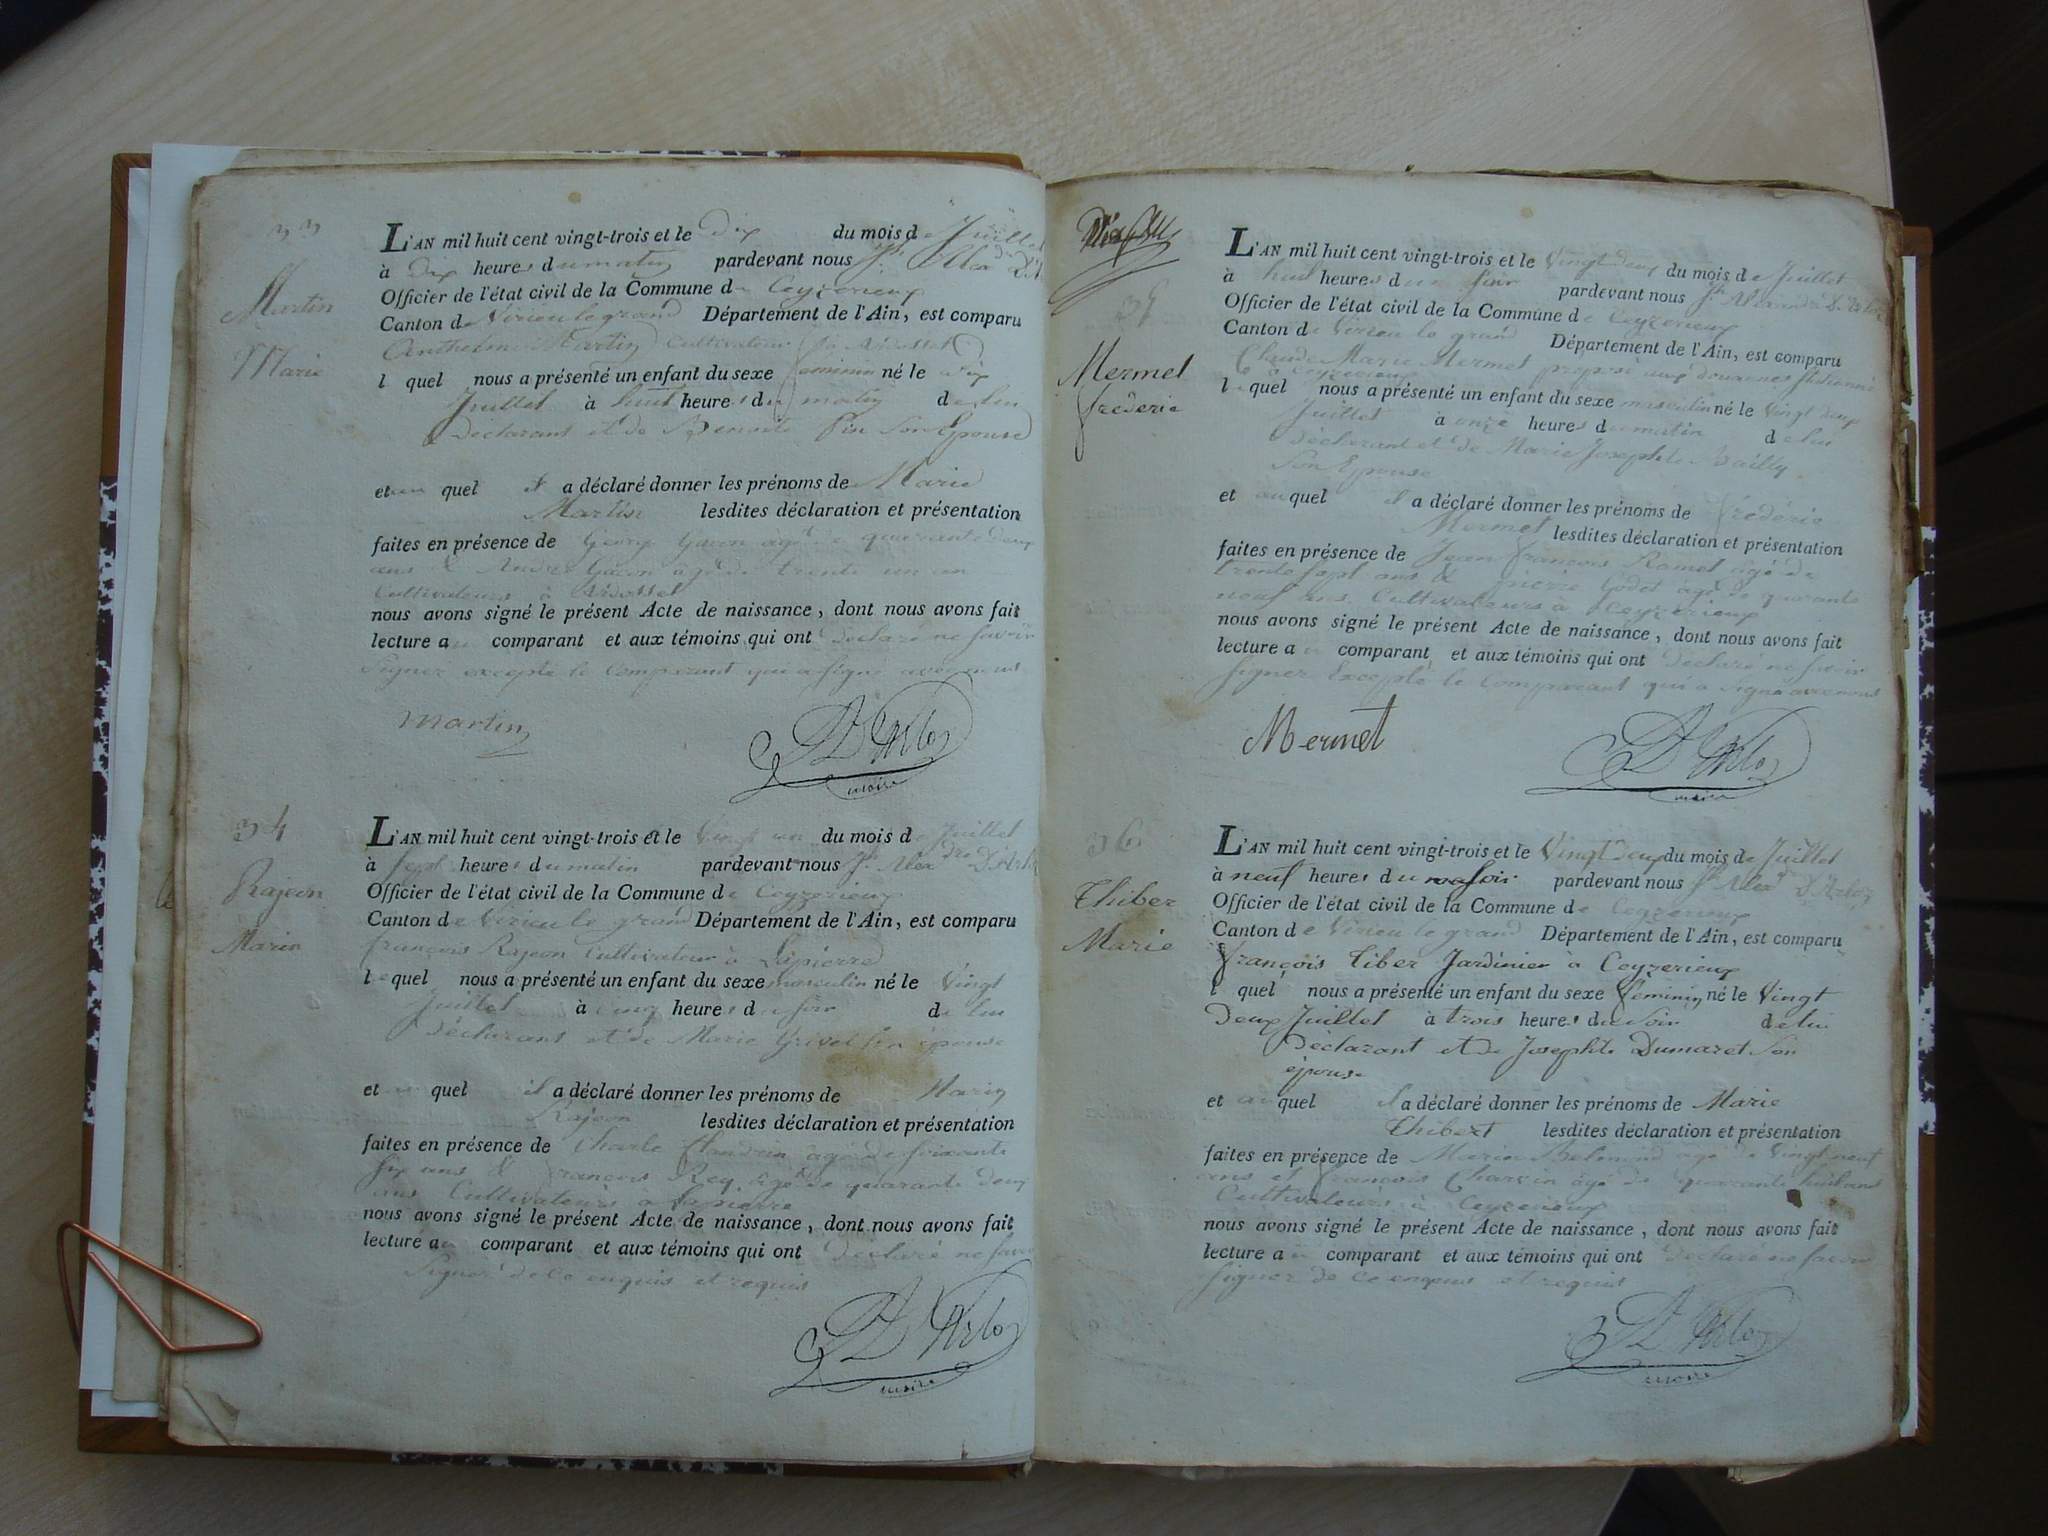 33
Martin
Marie
L'AN mil huit cent vingt-trois et le Dix du mois de Juillet
à Dix heures du matin pardevant nous Jh. Alex
Officier de l'état civil de la Commune de Ceyzerieux
Canton de Virieu le grand Département de l'Ain, est comparu
Anthelme Martin Cultivateur à Ardosset
lequel nous a présenté un enfant du sexe feminin né le Dix
Juillet à huit heures du matin de lui
Déclarant et de Benoite Son Epouse
et au quel il a déclaré donner les prénoms de Marie
Martin lesdites déclaration et présentation
faites en présence de George Gacon agé de quarante Deux
ans & André Gacon agé de trente un an
Cultivateurs à Ardosset
nous avons signé le présent Acte de naissance, dont nous avons fait
lecture au comparant et aux témoins qui ont Déclaré ne Savoir
Signer excepté le Comparant qui a Signé avec nous
Martin
D'Arloz
maire
34
Rajeon
Marin
L'AN mil huit cent vingt-trois et le Vingt un du mois de Juillet
à Sept heures du matin pardevant nous Jh. Alexdre D'Arloz
Officier de l'état civil de la Commune de Ceyzerieux
Canton de Virieu le grand Département de l'Ain, est comparu
françois Rajeon Cultivateur à Lapierre
lequel nous a présenté un enfant du sexe masculin né le Vingt
Juillet à cinq heures du Soir de lui
Déclarant et de Marie Grivel Son épouse
et au quel il a déclaré donner les prénoms de Marin
Rajeon lesdites déclaration et présentation
faites en présence de Charle Flandrin agé de Soixante
Six ans & françois Rey agé de quarante Deux
ans Cultivateurs a Lapierre
nous avons signé le présent Acte de naissance, dont nous avons fait
lecture au comparant et aux témoins qui ont Déclaré ne Savoir
Signer de ce enquis et requis
D'Arloz
maire
35
Mermet
frederic
L'AN mil huit cent vingt-trois et le Vingt Deux du mois de Juillet
à huit heures du Soir pardevant nous Jh. Alexandre D'Arloz
Officier de l'état civil de la Commune de Ceyzerieux
Canton de Virieu le grand Département de l'Ain, est comparu
Claude Marie Mermet préposé aux douannes Stationné
à Ceyzerieux
lequel nous a présenté un enfant du sexe masculin né le Vingt Deux
Juillet à onze heures du matin de lui
Déclarant et de Marie Josephte Bailly
Son Epouse
et au quel il a déclaré donner les prénoms de Frédéric
Mermet lesdites déclaration et présentation
faites en présence de Jean françois Ramel agé de
trente Sept ans & pierre Godet agé de quarante
neuf ans Cultivateurs à Ceyzerieux
nous avons signé le présent Acte de naissance, dont nous avons fait
lecture au comparant et aux témoins qui ont Déclaré ne Savoir
Signer Excepté le Comparant qui a Signé avec nous
Mermet
D'Arloz
maire
36
Thiber
Marie
L'AN mil huit cent vingt-trois et le Vingt Deux du mois de Juillet
à neuf heures du soir pardevant nous Jh. Alexdre D'Arloz
Officier de l'état civil de la Commune de Ceyzerieux
Canton de Virieu le grand Département de l'Ain, est comparu
françois Tiber Jardinier à Ceyzerieux
lequel nous a présenté un enfant du sexe feminin né le Vingt
Deux Juillet à trois heures du Soir de lui
Déclarant et de Josephte Dumaret Son
épouse
et au quel il a déclaré donner les prénoms de Marie
Thibert lesdites déclaration et présentation
faites en présence de Marin agé de Vingt neuf
ans et françois Charvin agé de quarante huit ans
Cultivateurs à Ceyzerieux
nous avons signé le présent Acte de naissance, dont nous avons fait
lecture au comparant et aux témoins qui ont Déclaré ne Savoir
Signer de ce enquis et requis
D'Arloz
maire